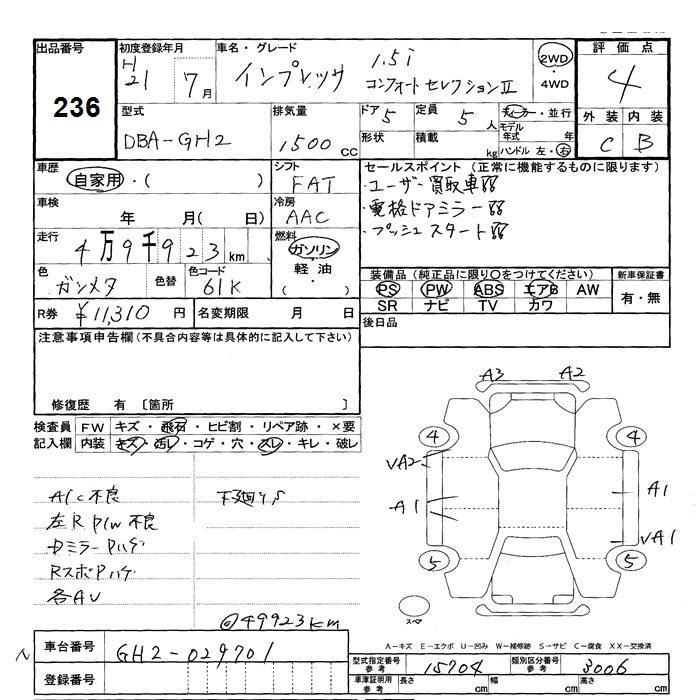 出品番号
236
初度登録年月
H21 7月
車名・グレード
インプレッサ
1.5i
コンフォートセレクションII
2WD
・4WD
評価点
4
外装 内装
C B
型式
DBA-GH2
排気量
1500 cc
ドア 5
形状
定員 5 人
積載 kg
ディーラー・並行
モデル年式 年
ハンドル 左・右
車歴
自家用・( )
シフト
FAT
セールスポイント(正常に機能するものに限ります)
・ユーザー買取車
・電格ドアミラー
・プッシュスタート
車検
年 月( 日)
冷房
AAC
走行
4万9千923km
燃料
ガソリン
軽油
・( )
色
ガンメタ
色替
色コード
61K
装備品(純正品に限り○をつけてください)
PS PW ABS エアB AW
SR ナビ TV カワ
新車保証書
有・無
R券 ¥11,310 円
名変期限 月 日
後日品
注意事項申告欄(不具合内容等は具体的に記入して下さい)
修復歴 有 〔箇所 〕
検査員記入欄
FW キズ・飛石・ヒビ割・リペア跡・×要
内装 キズ・汚レ・コゲ・穴・スレ・キレ・破レ
A/C不良
左R P/W不良
DミラーPハゲ
RスポPハゲ
各AU
下廻りS
@49923km
A3 A2
4 4
VA2
A1 A1
VA1
5 5
スペア
A-キズ E-エクボ U-凹み W-補修跡 S-サビ C-腐食 XX-交換済
車台番号
GH2-029701
登録番号
型式指定番号 参考
15704
類別区分番号 参考
3006
車庫証明用 参考
長さ cm 幅 cm 高さ cm